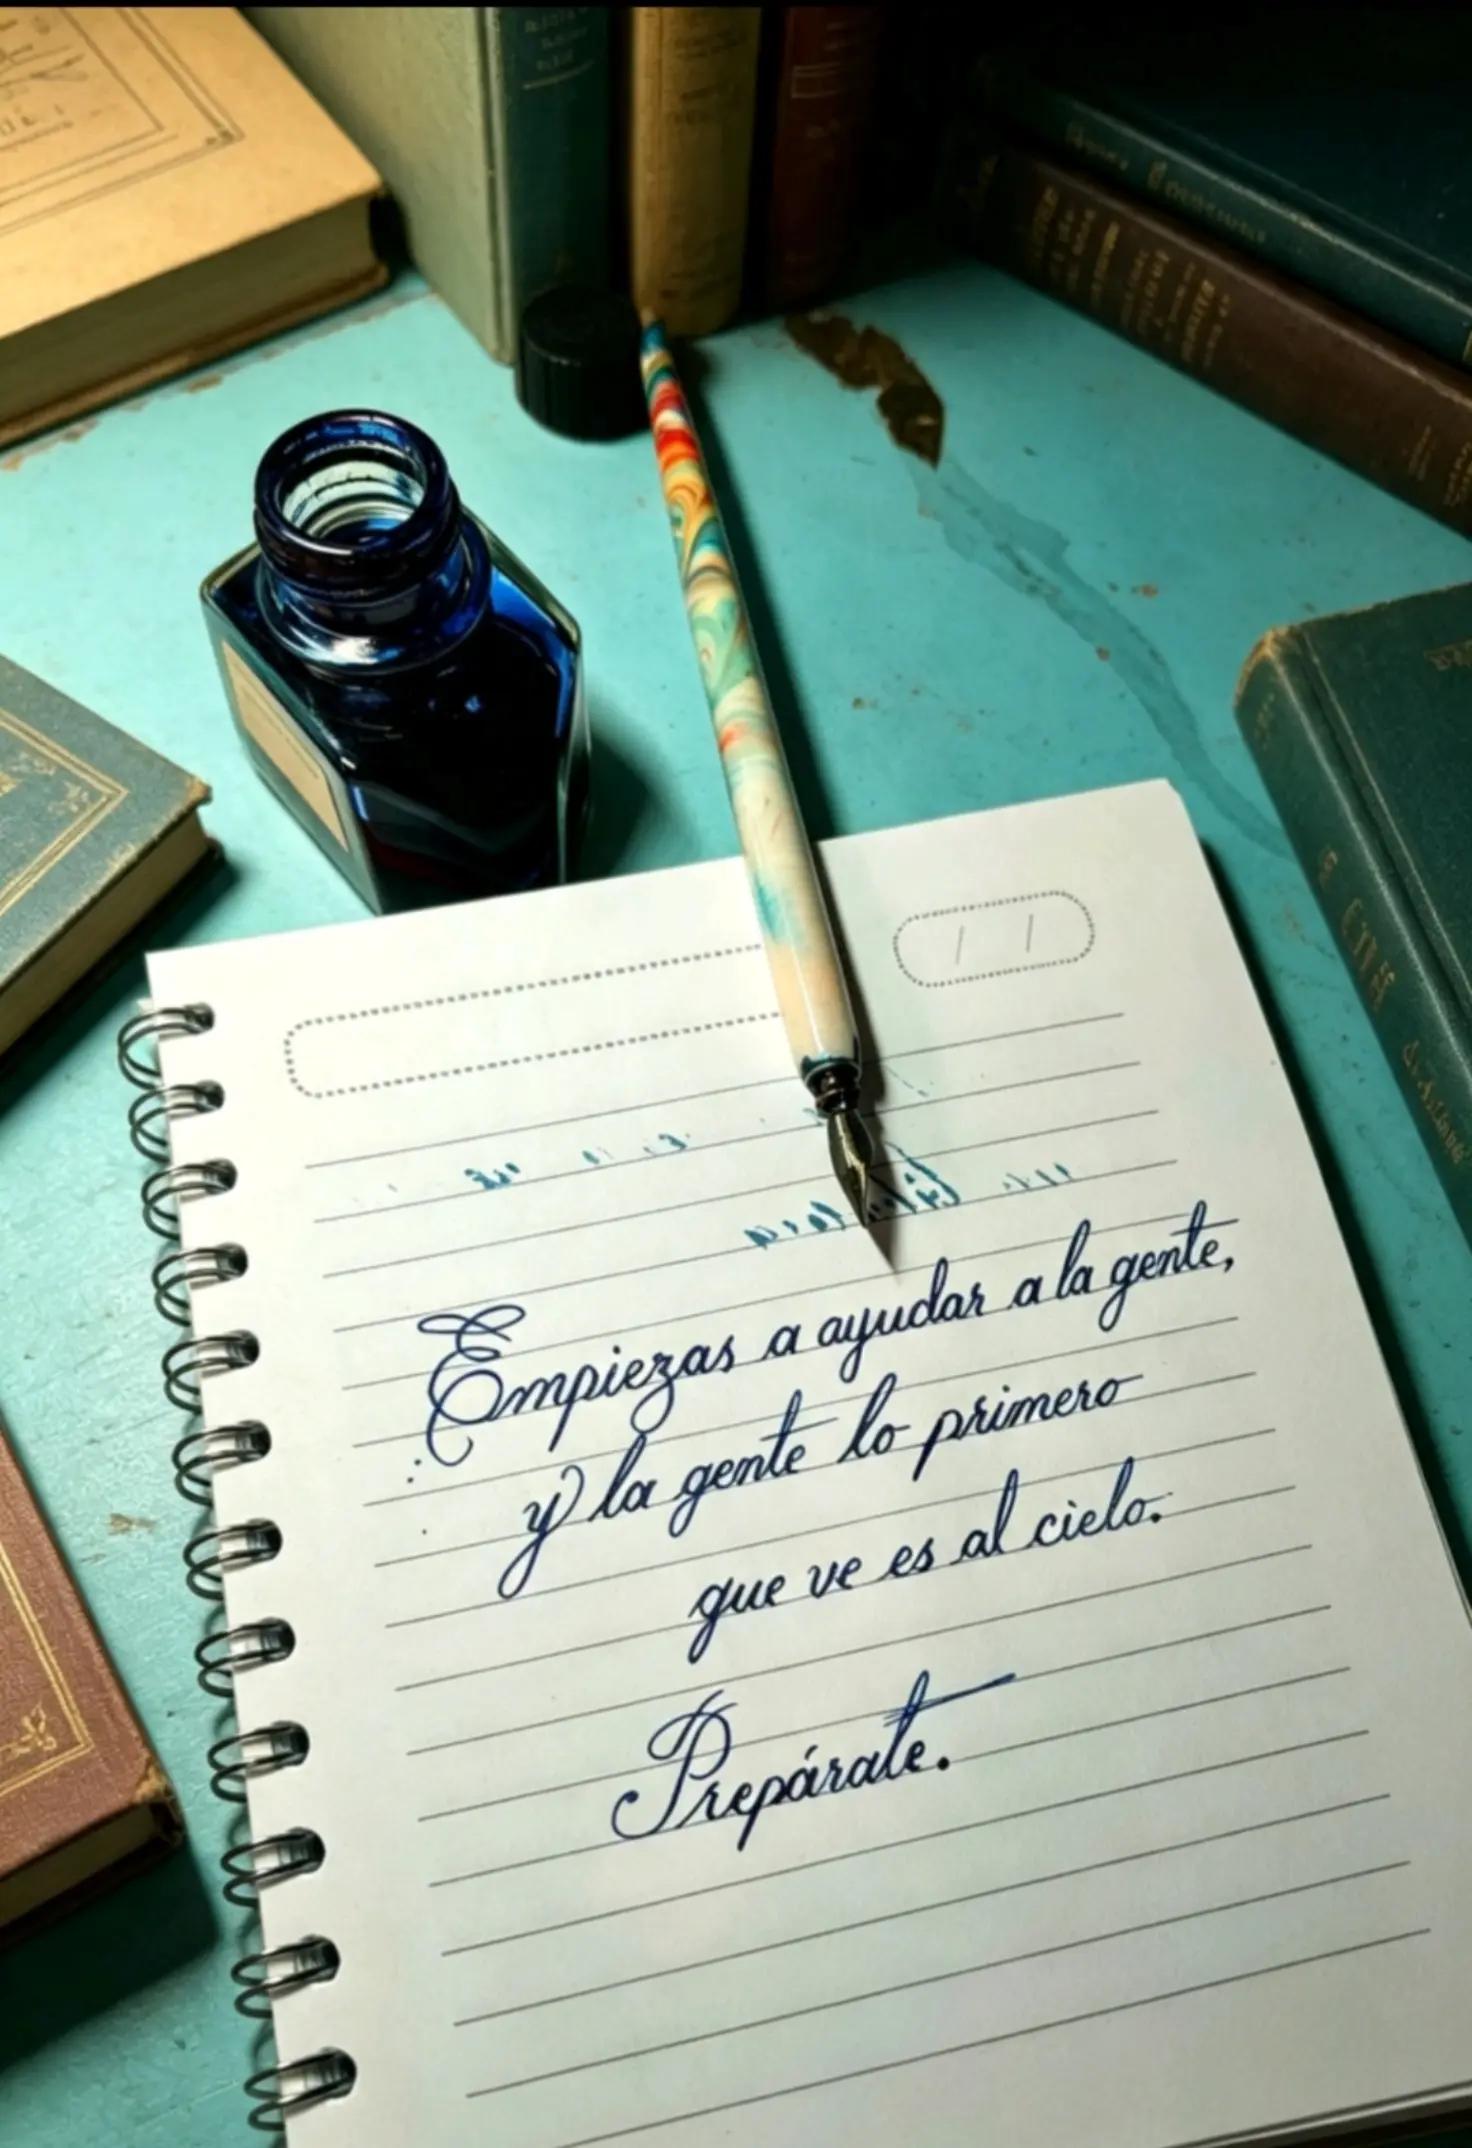 Empiezas a ayudar a la gente,
y la gente lo primero
que ve es al cielo.
Prepárate.